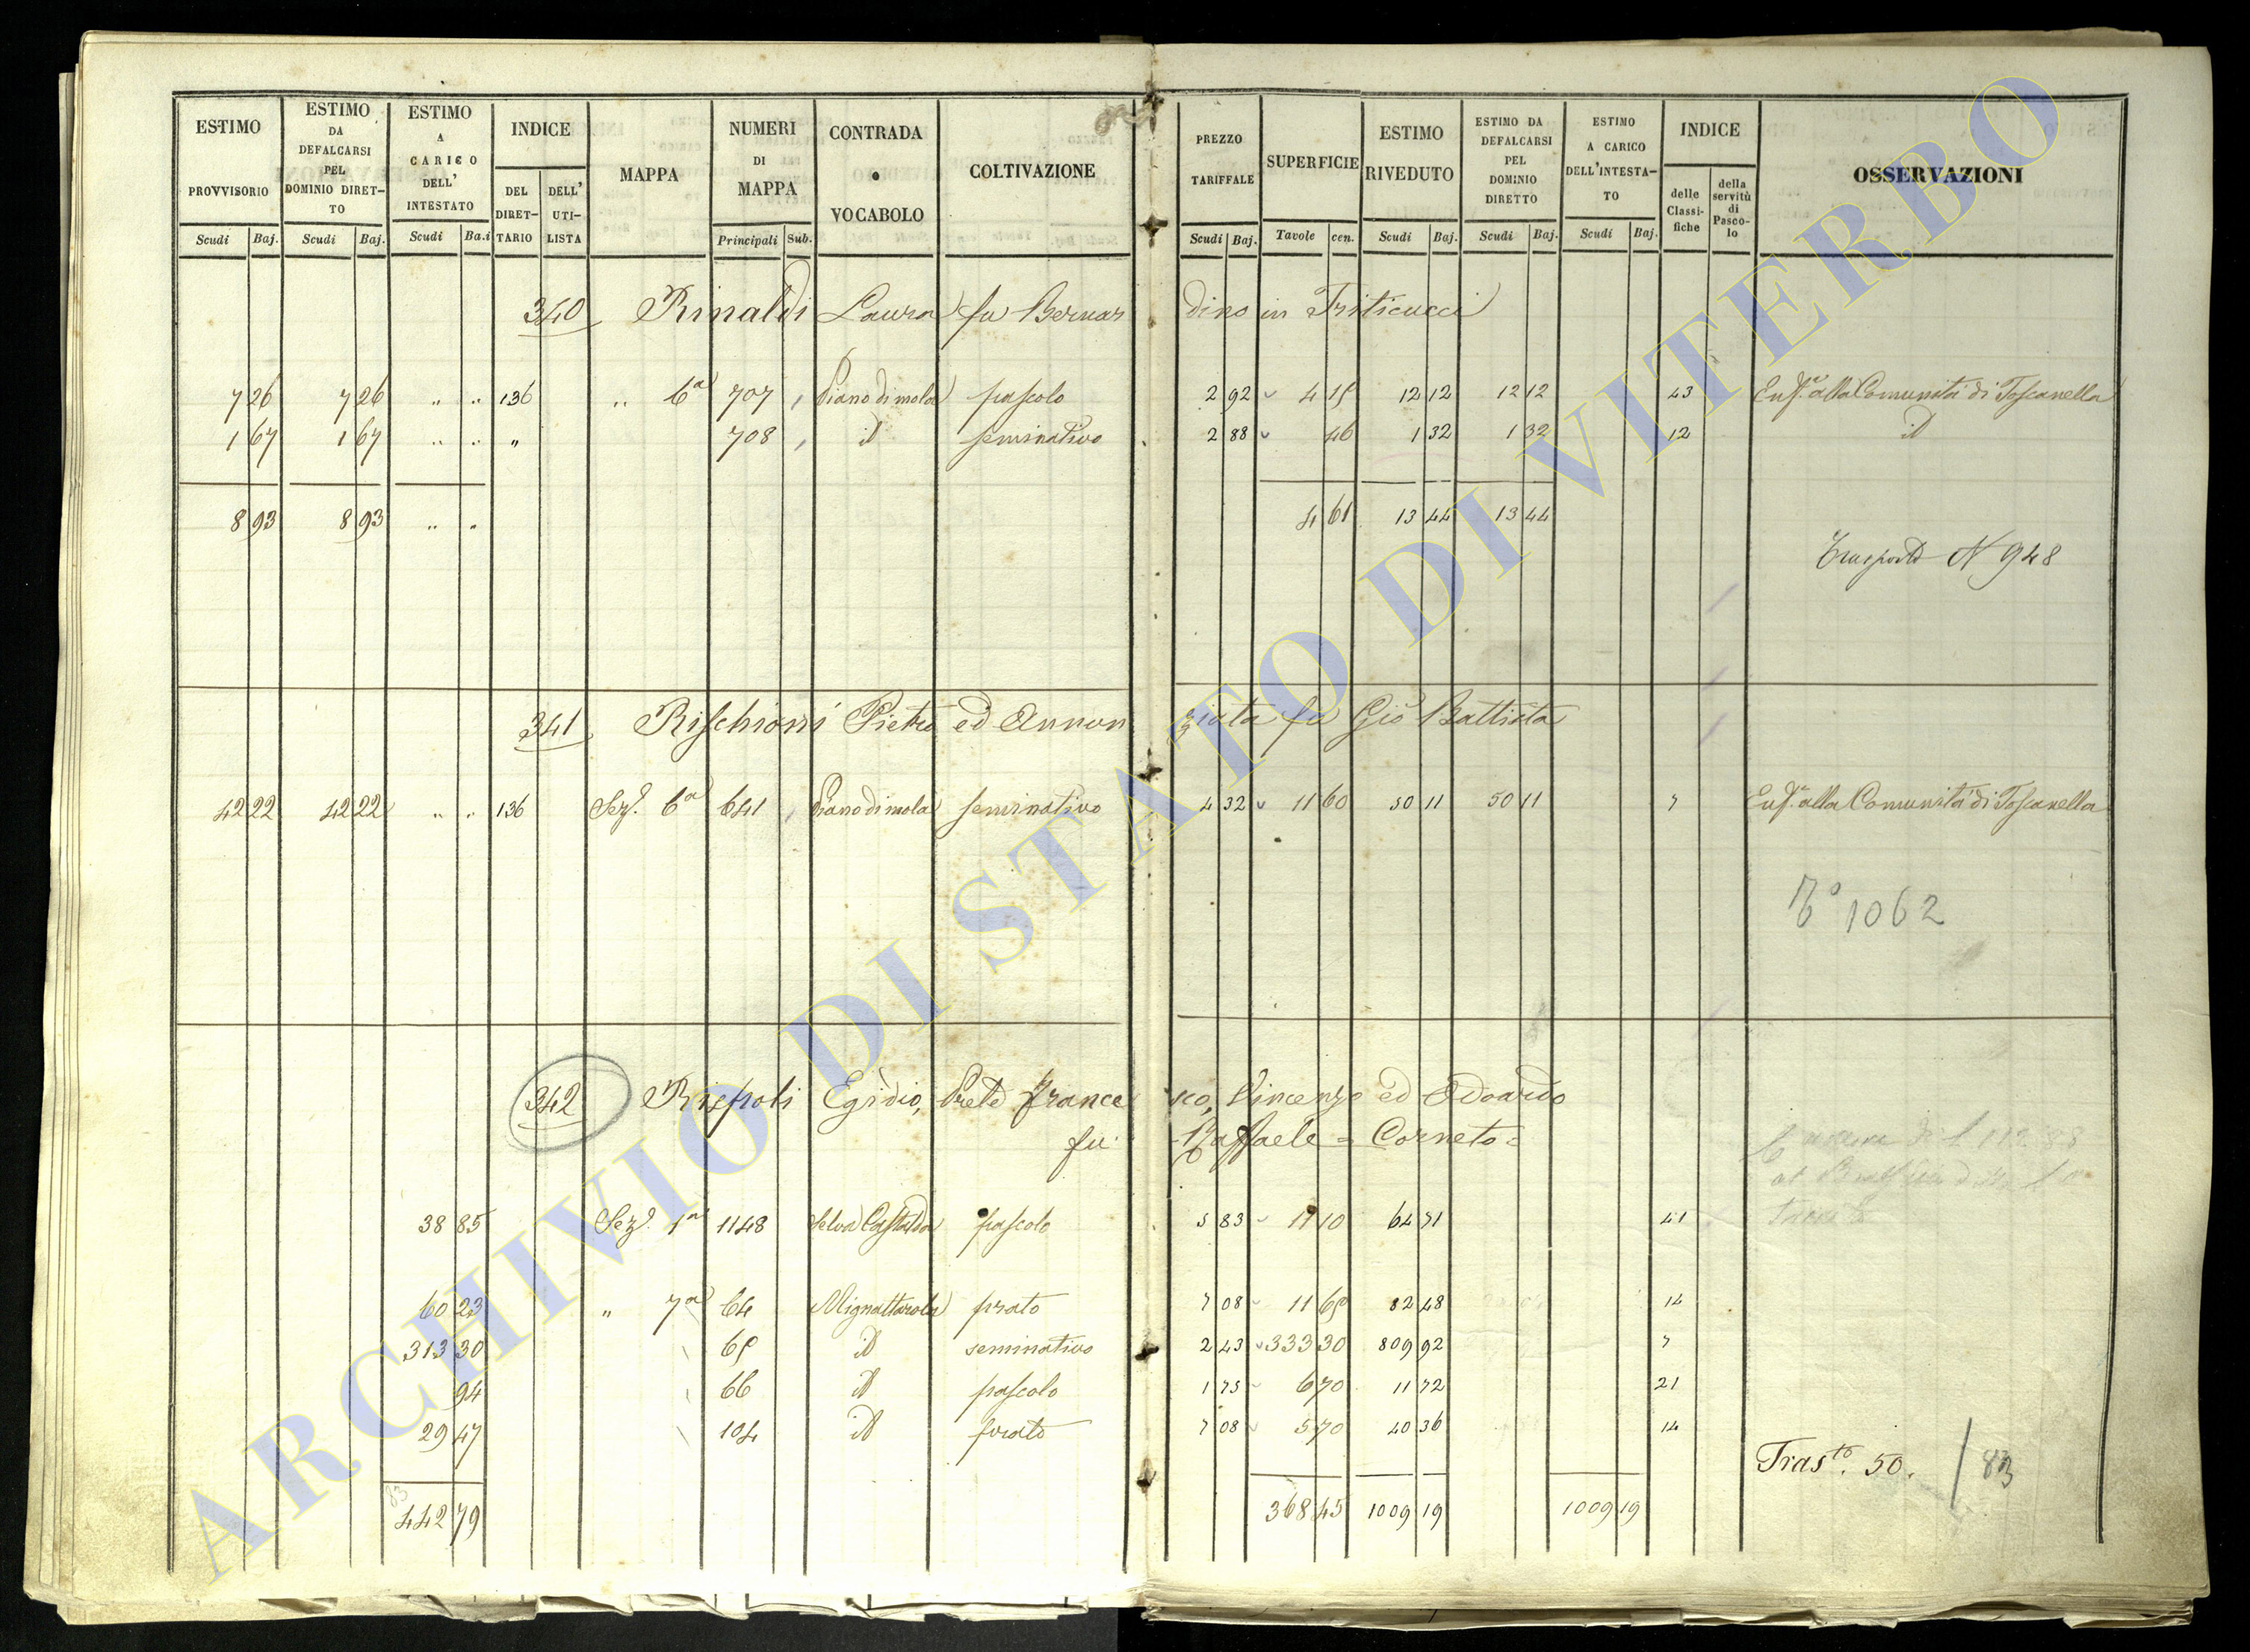 ESTIMO PROVVISORIO Scudi Baj.
ESTIMO DA DEFALCARSI PEL DOMINIO DIRETTO Scudi Baj.
ESTIMO A CARICO DELL' INTESTATO Scudi Ba.i
INDICE DEL DIRETTARIO DELL' UTILISTA
MAPPA
NUMERI DI MAPPA Principali Sub.
CONTRADA o VOCABOLO
COLTIVAZIONE
PREZZO TARIFFALE Scudi Baj.
SUPERFICIE Tavole cen.
ESTIMO RIVEDUTO Scudi Baj.
ESTIMO DA DEFALCARSI PEL DOMINIO DIRETTO Scudi Baj.
ESTIMO A CARICO DELL'INTESTATO Scudi Baj.
INDICE delle Classifiche della servitù di Pascolo
OSSERVAZIONI
340 Rinaldi Laura fu Bernardino in Triticucci
7 26 7 26 " " 136 " 6a 707 Piano di mola pascolo 2 92 4 15 12 12 12 12 43 Enf.a alla Comunità di Toscanella
1 67 1 67 " " " 708 id seminativo 2 88 46 1 32 1 32 12 id
8 93 8 93 " " 4 61 13 44 13 44
Trasporto N 948
341 Rischioni Pietro ed Annunziata fu Gio Battista
42 22 42 22 " " 136 Sez. 6a 641 Piano di mola seminativo 4 32 11 60 50 11 50 11 7 Enf.a alla Comunità di Toscanella
To 1062
342 Rispoli Egidio, Prete Francesco, Vincenzo ed Edoardo
fu Raffaele = Corneto =
38 85 Sez. 1a 1148 Selva Castalda pascolo 5 83 11 10 64 71 41
60 23 " 7a 64 Mignattarola prato 7 08 11 65 82 48 14
313 30 65 id seminativo 2 43 333 30 809 92 7
94 66 id pascolo 1 75 6 70 11 72 21
29 47 104 id prato 7 08 5 70 40 36 14
Trasto. 50. / 83
83
442 79 368 45 1009 19 1009 19
ARCHIVIO DI STATO DI VITERBO